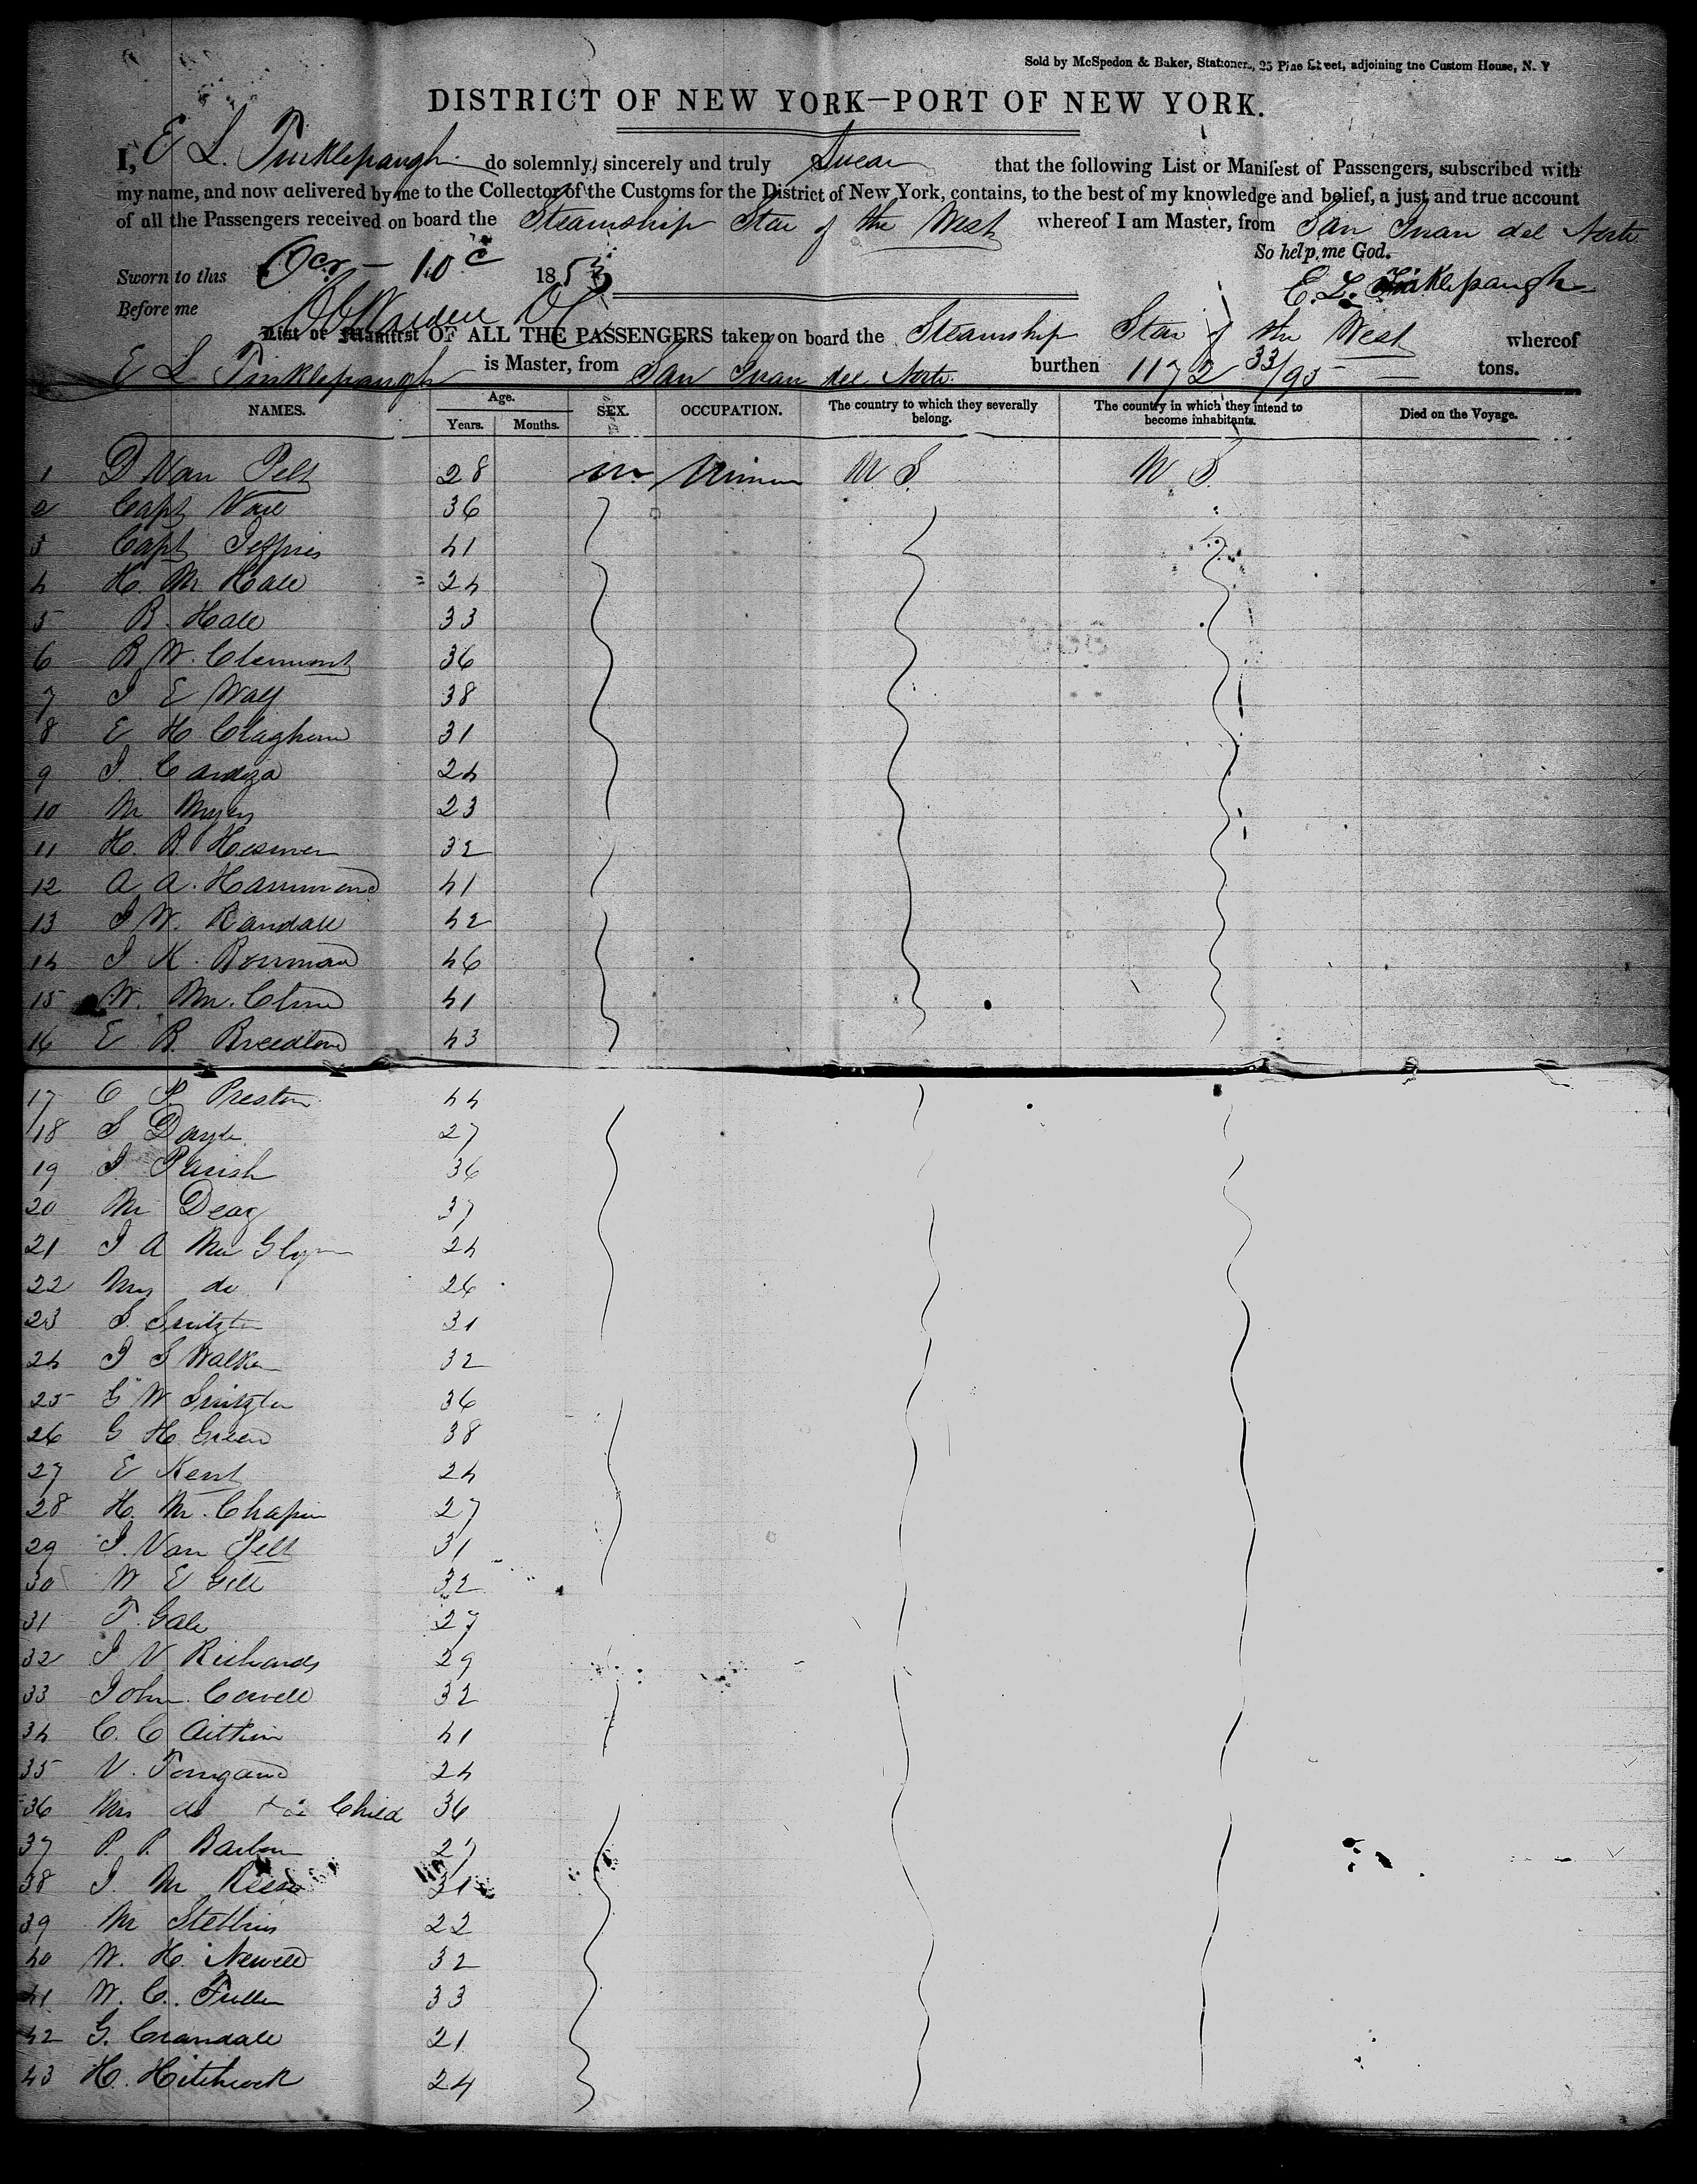 Sold by McSpedon & Baker, Stationers, 25 Pine Street, adjoining the Custom House, N. Y
DISTRICT OF NEW YORK—PORT OF NEW YORK.
I, E L. Tinklepaugh do solemnly, sincerely and truly Swear that the following List or Manifest of Passengers, subscribed with
my name, and now delivered by me to the Collector of the Customs for the District of New York, contains, to the best of my knowledge and belief, a just and true account
of all the Passengers received on board the Steamship Star of the West whereof I am Master, from San Juan del Norte
So help me God.
Sworn to this Oct 10 1853
E. L. Tinklepaugh
Before me
List or Manifest OF ALL THE PASSENGERS taken on board the Steamship Star of the West whereof
E L Tinklepaugh is Master, from San Juan del Norte burthen 1172 33/95 tons.
NAMES. Age. SEX. OCCUPATION. The country to which they severally belong. The country in which they intend to become inhabitants. Died on the Voyage.
Years. Months.
1 D Van Pelt 28 m U S U S
2 Capt 36
3 Capt Jeffries 41
4 H. M. Hall 24
5 R. Hall 33
6 R. W. Clermont 36
7 J E 38
8 E H. Claghorn 31
9 J. 24
10 M Myers 23
11 H. R. 32
12 A. A. Hammond 41
13 J W. Randall 42
14 J K. Bowman 46
15 W. M. Cline 41
16 E R. Breedlove 43
17 C P Preston 44
18 S 27
19 J Parish 36
20 Mr 37
21 J A Mc Glynn 24
22 Mrs do 26
23 S. 31
24 J S Walker 32
25 G W 36
26 G H Green 38
27 E Kent 24
28 H. M. Chapin 27
29 J. Van Pelt 31
30 W E Gill 32
31 T. Gale 27
32 J V Richards 29
33 John Cowell 32
34 C. C Aitkin 41
35 V. 24
36 Mrs do Child 36
37 P. P. 27
38 J. M Reese 31
39 M Stebbins 22
40 W. H. Newell 32
41 W. C. Fuller 33
42 G. Crandall 21
43 H. Hitchcock 24